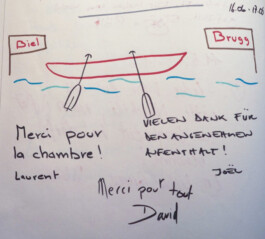 16.06.-17.06
Biel
Brugg
Merci pour
la chambre!
Laurent
VIELEN DANK FÜR
DEN ANGENEHMEN
AUFENTHALT!
JOËL
Merci pour tout
David